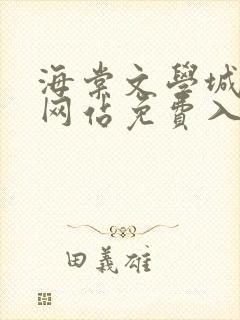 海棠文學城
网佔免費入
田義雄